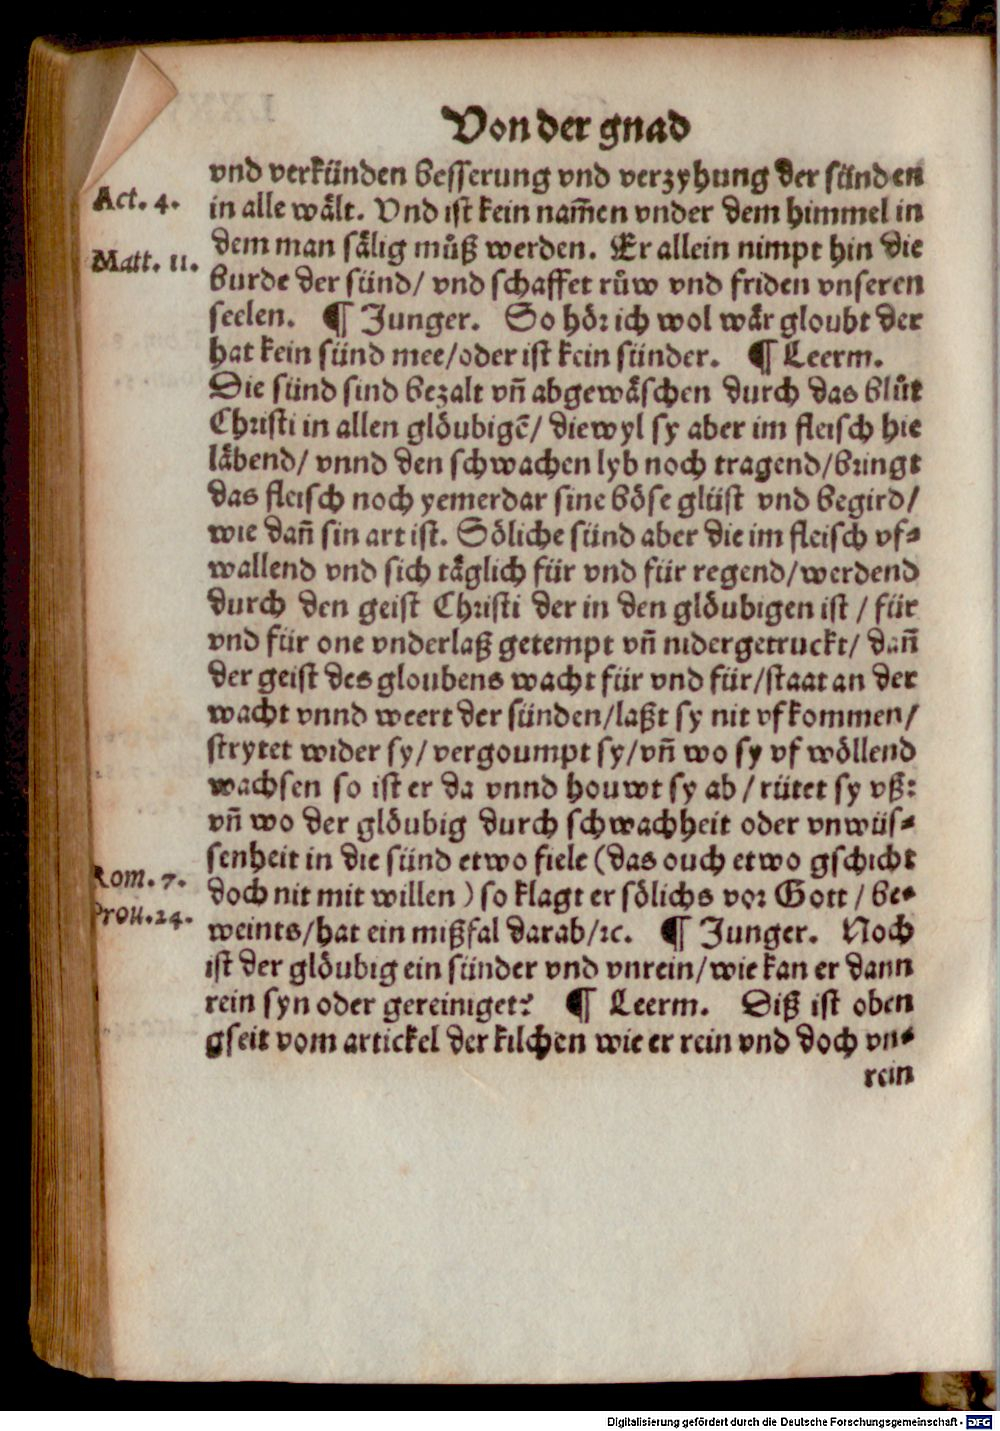 Von der gnad
vnd verkünden besserung vnd verzyhung der sünden
Act. 4.
in alle wält. Vnd ist kein nam̄en vnder dem himmel in
dem man sälig můß werden. Er allein nimpt hin die
Matt. 11.
burde der sünd/ vnd schaffet růw vnd friden vnseren
seelen. ¶ Junger. So hör ich wol wär gloubt der
hat kein sünd mee/oder ist kein sünder. ¶ Leerm.
Die sünd sind bezalt vn̄ abgewäschen durch das blůt
Christi in allen glöubigē/ diewyl sy aber im fleisch hie
läbend/ vnnd den schwachen lyb noch tragend/bringt
das fleisch noch yemerdar sine böse glüst vnd begird/
wie dan̄ sin art ist. Söliche sünd aber die im fleisch vf⸗
wallend vnd sich täglich für vnd für regend/werdend
durch den geist Christi der in den glöubigen ist / für
vnd für one vnderlaß getempt vn̄ nidergetruckt/ dan̄
der geist des gloubens wacht für vnd für/staat an der
wacht vnnd weert der sünden/laßt sy nit vfkommen/
strytet wider sy/ vergoumpt sy/vn̄ wo sy vf wöllend
wachsen so ist er da vnnd houwt sy ab / rütet sy vß:
vn̄ wo der glöubig durch schwachheit oder vnwüs⸗
senheit in die sünd etwo fiele (das ouch etwo gschicht
Rom. 7.
doch nit mit willen ) so klagt er sölichs vor Gott / be⸗
Prou. 24.
weints/hat ein mißfal darab/ꝛc. ¶ Junger. Noch
ist der glöubig ein sünder vnd vnrein/wie kan er dann
rein syn oder gereiniget? ¶ Leerm. Diß ist oben
gseit vom artickel der kilchen wie er rein vnd doch vn⸗
rein
Digitalisierung gefördert durch die Deutsche Forschungsgemeinschaft - DFG